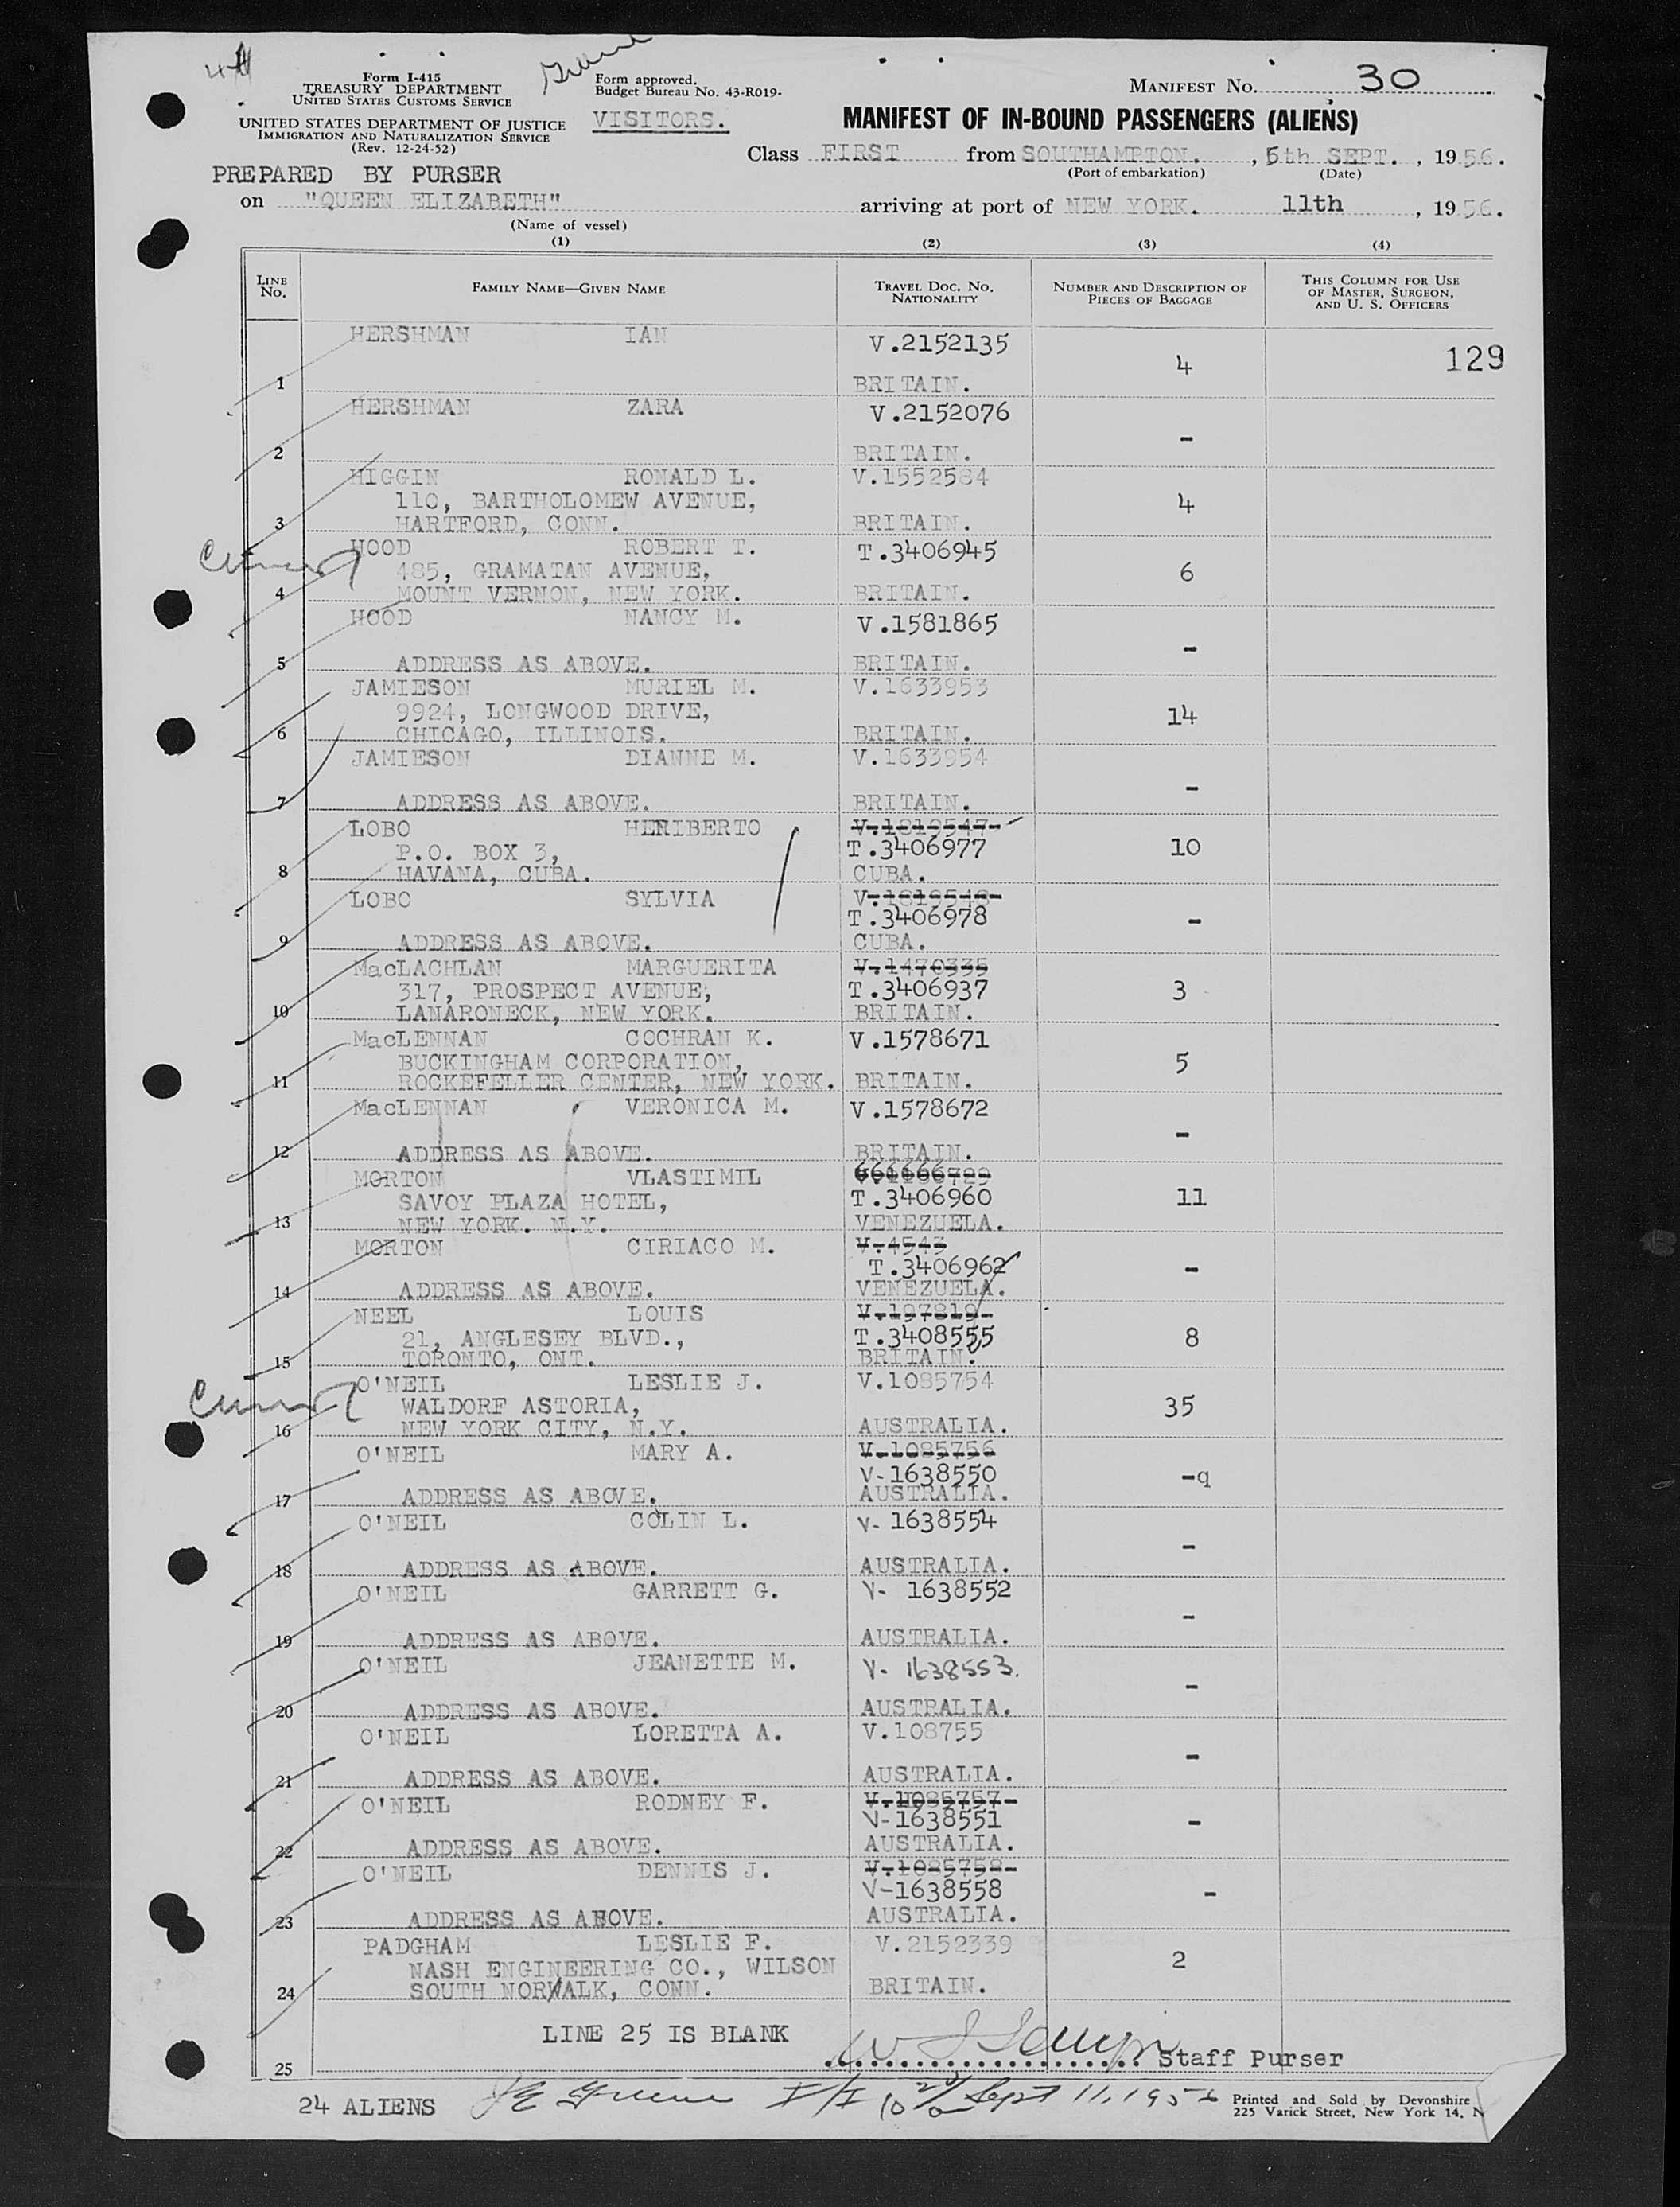 Greene
Form I-415
TREASURY DEPARTMENT
UNITED STATES CUSTOMS SERVICE
UNITED STATES DEPARTMENT OF JUSTICE
IMMIGRATION AND NATURALIZATION SERVICE
(Rev. 12-24-52)
Form approved.
Budget Bureau No. 43-R019-
VISITORS.
MANIFEST NO. 30
MANIFEST OF IN-BOUND PASSENGERS (ALIENS)
Class FIRST from SOUTHAMPTON. , 5th SEPT. , 1956.
(Port of embarkation) (Date)
PREPARED BY PURSER
on "QUEEN ELIZABETH" arriving at port of NEW YORK. 11th , 1956.
(Name of vessel)
(1) (2) (3) (4)
LINE No. FAMILY NAME—GIVEN NAME TRAVEL DOC. NO. NATIONALITY NUMBER AND DESCRIPTION OF PIECES OF BAGGAGE THIS COLUMN FOR USE OF MASTER, SURGEON, AND U. S. OFFICERS
HERSHMAN IAN V.2152135
4 129
1 BRITAIN.
HERSHMAN ZARA V.2152076
-
2 BRITAIN.
HIGGIN RONALD L. V.1552584
110, BARTHOLOMEW AVENUE, 4
3 HARTFORD, CONN. BRITAIN.
HOOD ROBERT T. T.3406945
485, GRAMATAN AVENUE, 6
4 MOUNT VERNON, NEW YORK. BRITAIN.
HOOD NANCY M. V.1581865
-
5 ADDRESS AS ABOVE. BRITAIN.
JAMIESON MURIEL M. V.1633953
9924, LONGWOOD DRIVE, 14
6 CHICAGO, ILLINOIS. BRITAIN.
JAMIESON DIANNE M. V.1633954
-
7 ADDRESS AS ABOVE. BRITAIN.
LOBO HERIBERTO V.1819547
P.O. BOX 3, T.3406977 10
8 HAVANA, CUBA. CUBA.
LOBO SYLVIA V.1819548
T.3406978 -
9 ADDRESS AS ABOVE. CUBA.
MacLACHLAN MARGUERITA V.1470335
317, PROSPECT AVENUE, T.3406937 3
10 LAMARONECK, NEW YORK. BRITAIN.
MacLENNAN COCHRAN K. V.1578671
BUCKINGHAM CORPORATION, 5
11 ROCKEFELLER CENTER, NEW YORK. BRITAIN.
MacLENNAN VERONICA M. V.1578672
-
12 ADDRESS AS ABOVE. BRITAIN.
MORTON VLASTIMIL
SAVOY PLAZA HOTEL, T.3406960 11
13 NEW YORK. N.Y. VENEZUELA.
MORTON CIRIACO M. V.4543
T.3406962 -
14 ADDRESS AS ABOVE. VENEZUELA.
NEEL LOUIS V.197819
21, ANGLESEY BLVD., T.3408555 8
15 TORONTO, ONT. BRITAIN.
O'NEIL LESLIE J. V.1085754
WALDORF ASTORIA, 35
16 NEW YORK CITY, N.Y. AUSTRALIA.
O'NEIL MARY A. V.1085756
V-1638550 -q
17 ADDRESS AS ABOVE. AUSTRALIA.
O'NEIL COLIN L. V- 1638554
-
18 ADDRESS AS ABOVE. AUSTRALIA.
O'NEIL GARRETT G. V- 1638552
-
19 ADDRESS AS ABOVE. AUSTRALIA.
O'NEIL JEANETTE M. V- 1638553.
-
20 ADDRESS AS ABOVE. AUSTRALIA.
O'NEIL LORETTA A. V.108755
-
21 ADDRESS AS ABOVE. AUSTRALIA.
O'NEIL RODNEY F. V.1085757
V-1638551 -
22 ADDRESS AS ABOVE. AUSTRALIA.
O'NEIL DENNIS J. V.1085758
V-1638558 -
23 ADDRESS AS ABOVE. AUSTRALIA.
PADGHAM LESLIE F. V.2152339
NASH ENGINEERING CO., WILSON 2
24 SOUTH NORWALK, CONN. BRITAIN.
LINE 25 IS BLANK
25 Staff Purser
24 ALIENS Greene I/I Sept 11, 1956
Printed and Sold by Devonshire
225 Varick Street, New York 14, N